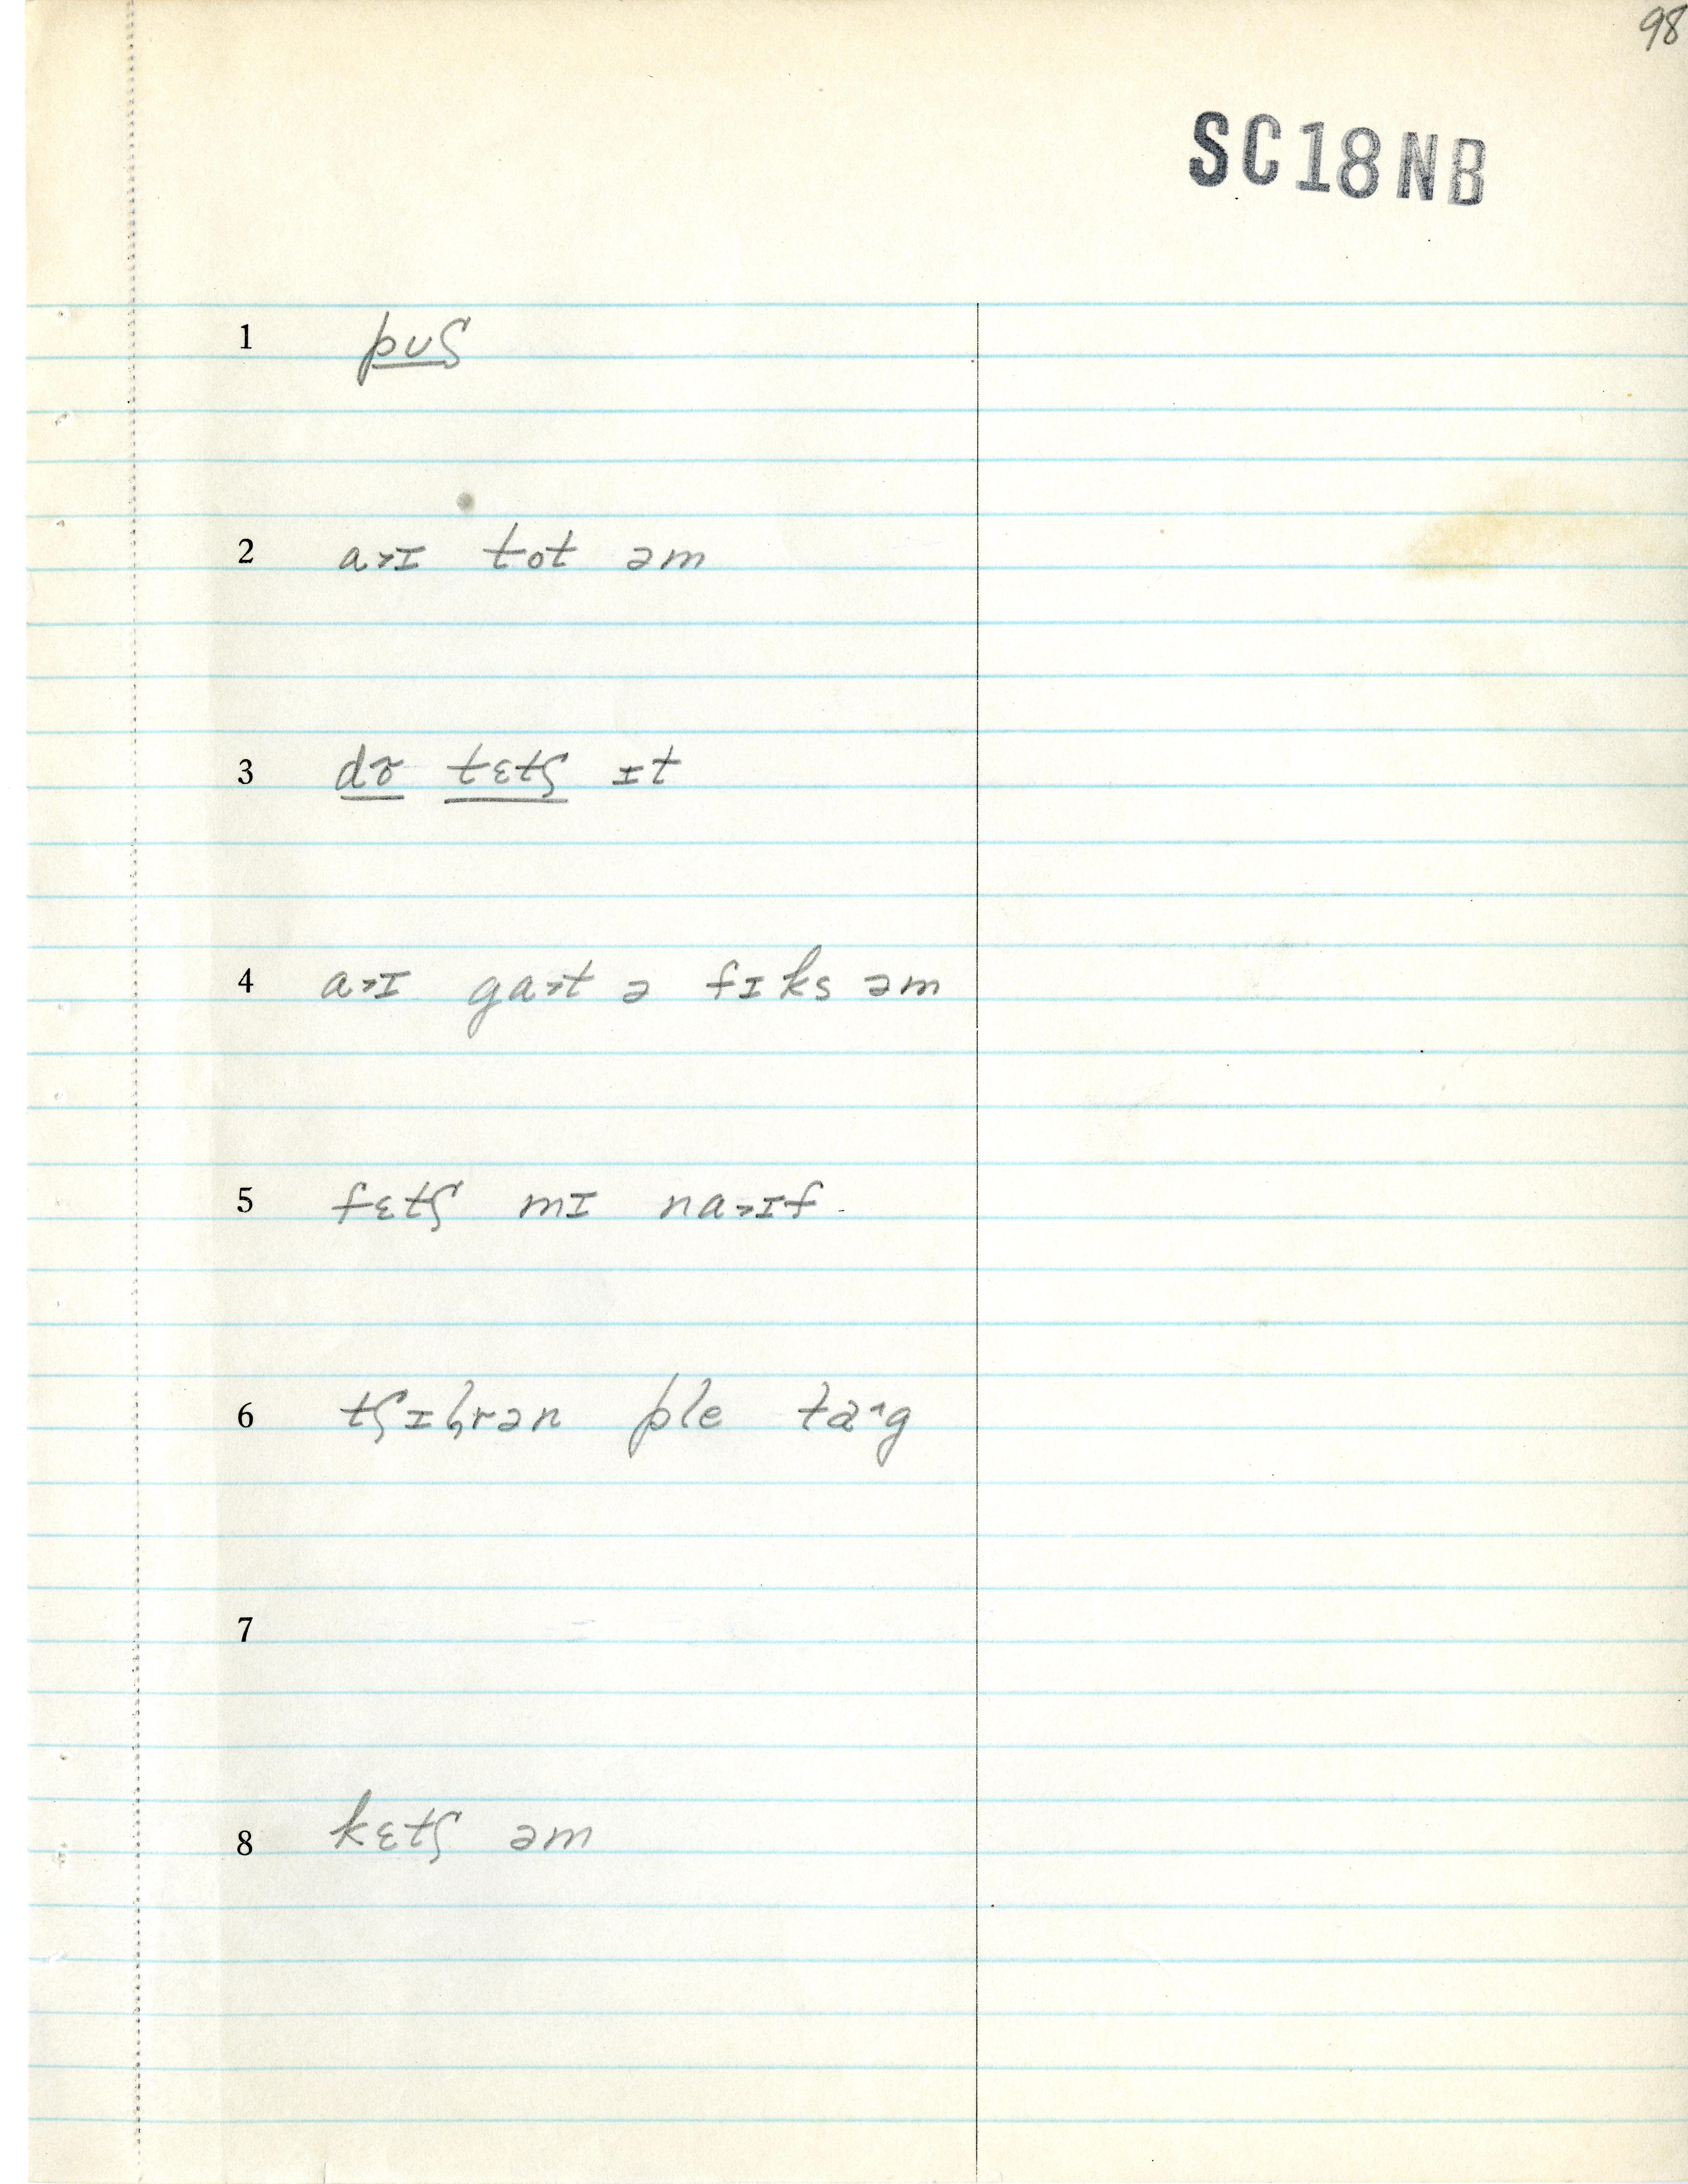 98
SC18NB
1 pʊʃ
2 a˃ɪ tot əm
3 dɚ tɛtʃ ɪt
4 a˃ɪ ga˃t ə fɪks əm
5 fɛtʃ mɪ na˃ɪf
6 tʃɪlrən ple ta˄g
7
8 kɛtʃ əm